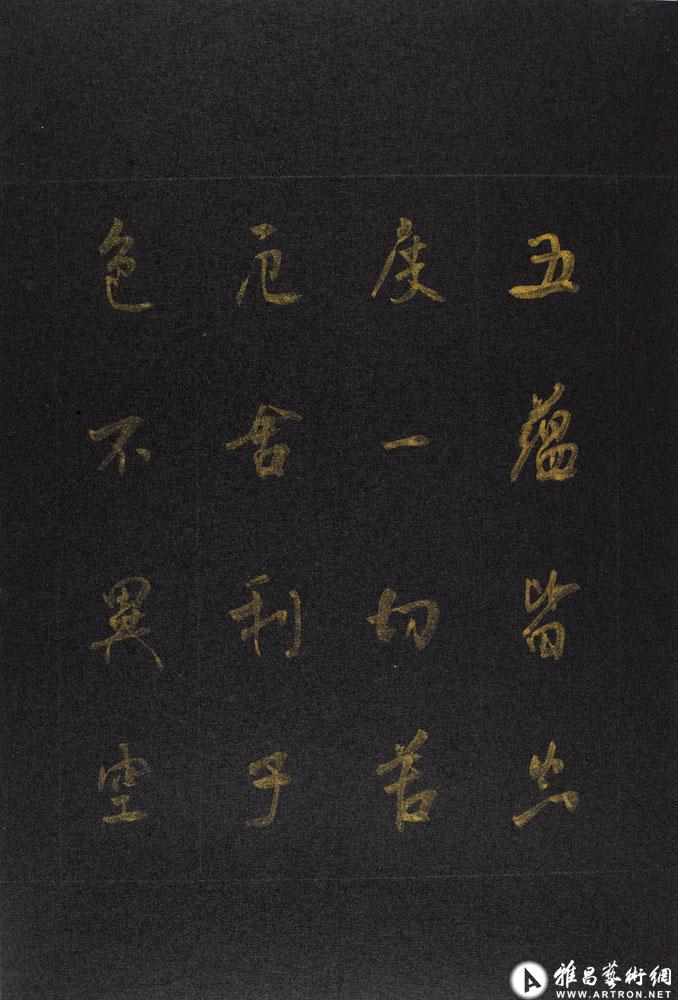 五蘊皆空
度一切苦
厄舍利子
色不異空
雅昌藝術網
WWW.ARTRON.NET